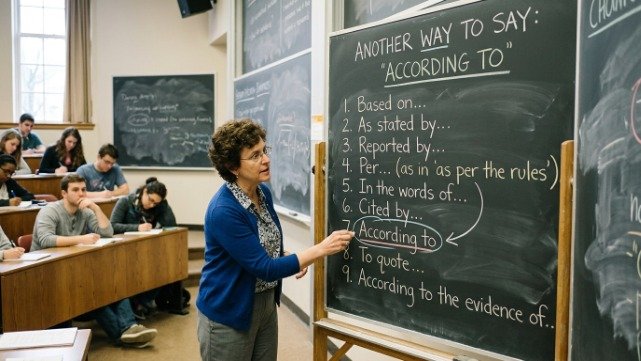 ANOTHER WAY TO SAY:
"ACCORDING TO"
1. Based on...
2. As stated by...
3. Reported by...
4. Per... (as in 'as per the rules')
5. In the words of...
6. Cited by...
7. According to
8. To quote...
9. According to the evidence of...